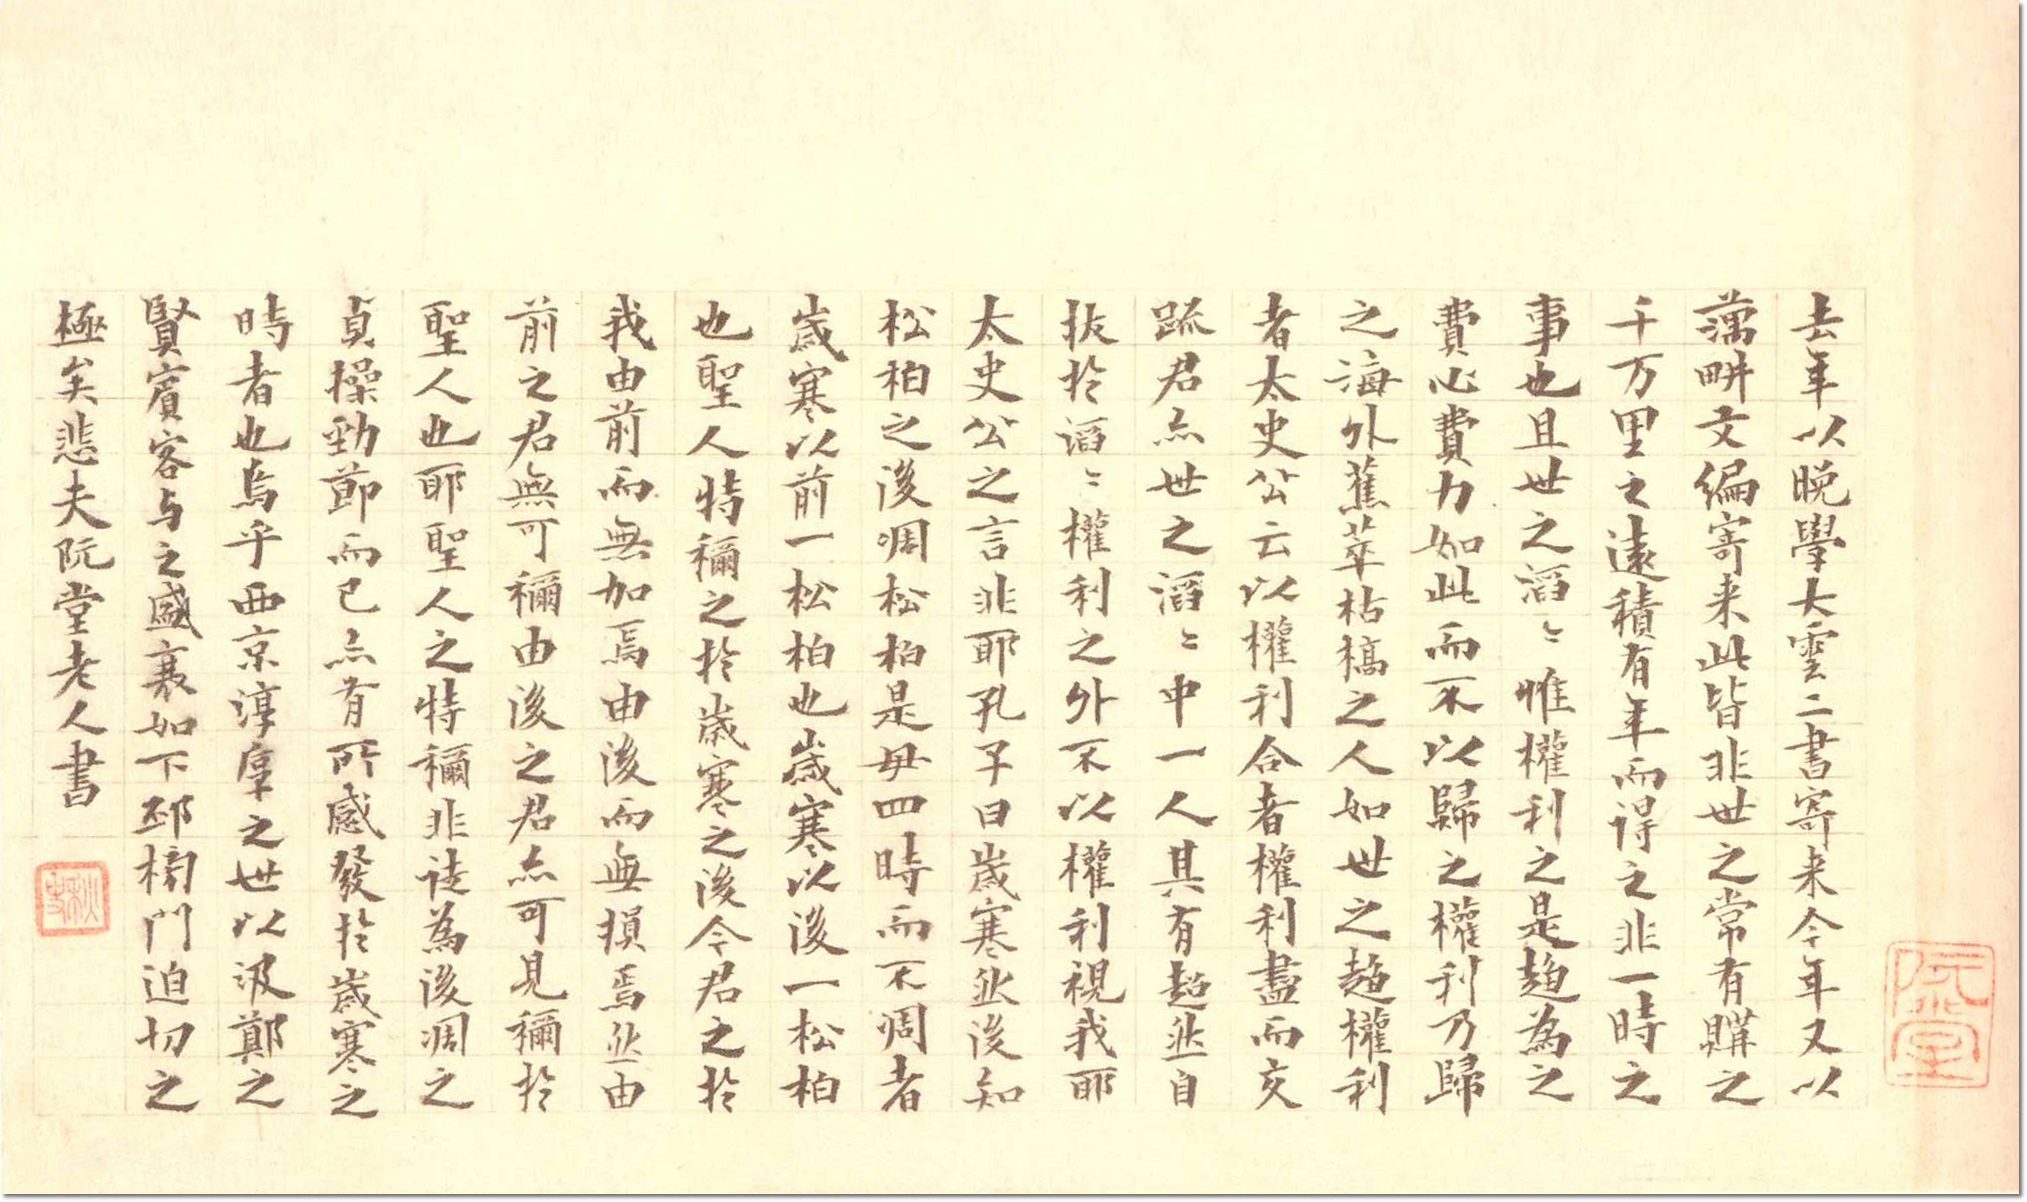 去年以晚學大雲二書寄来今年又以
藕畊文編寄来此皆非世之常有購之
千万里之遠積有年而得之非一時之
事也且世之滔〻惟權利之是趨為之
費心費力如此而不以歸之權利乃歸
之海外蕉萃枯槁之人如世之趨權利
者太史公云以權利合者權利盡而交
疏君亦世之滔〻中一人其有超然自
拔於滔〻權利之外不以權利視我耶
太史公之言非耶孔子曰歲寒然後知
松栢之後凋松栢是毋四時而不凋者
歲寒以前一松栢也歲寒以後一松栢
也聖人特稱之於歲寒之後今君之於
我由前而無加焉由後而無損焉然由
前之君無可稱由後之君亦可見稱於
聖人也耶聖人之特稱非徒為後凋之
貞操勁節而已亦有所感發於歲寒之
時者也烏乎西京淳厚之世以汲鄭之
賢賓客与之盛衰如下邳榜門迫切之
極矣悲夫阮堂老人書
阮堂